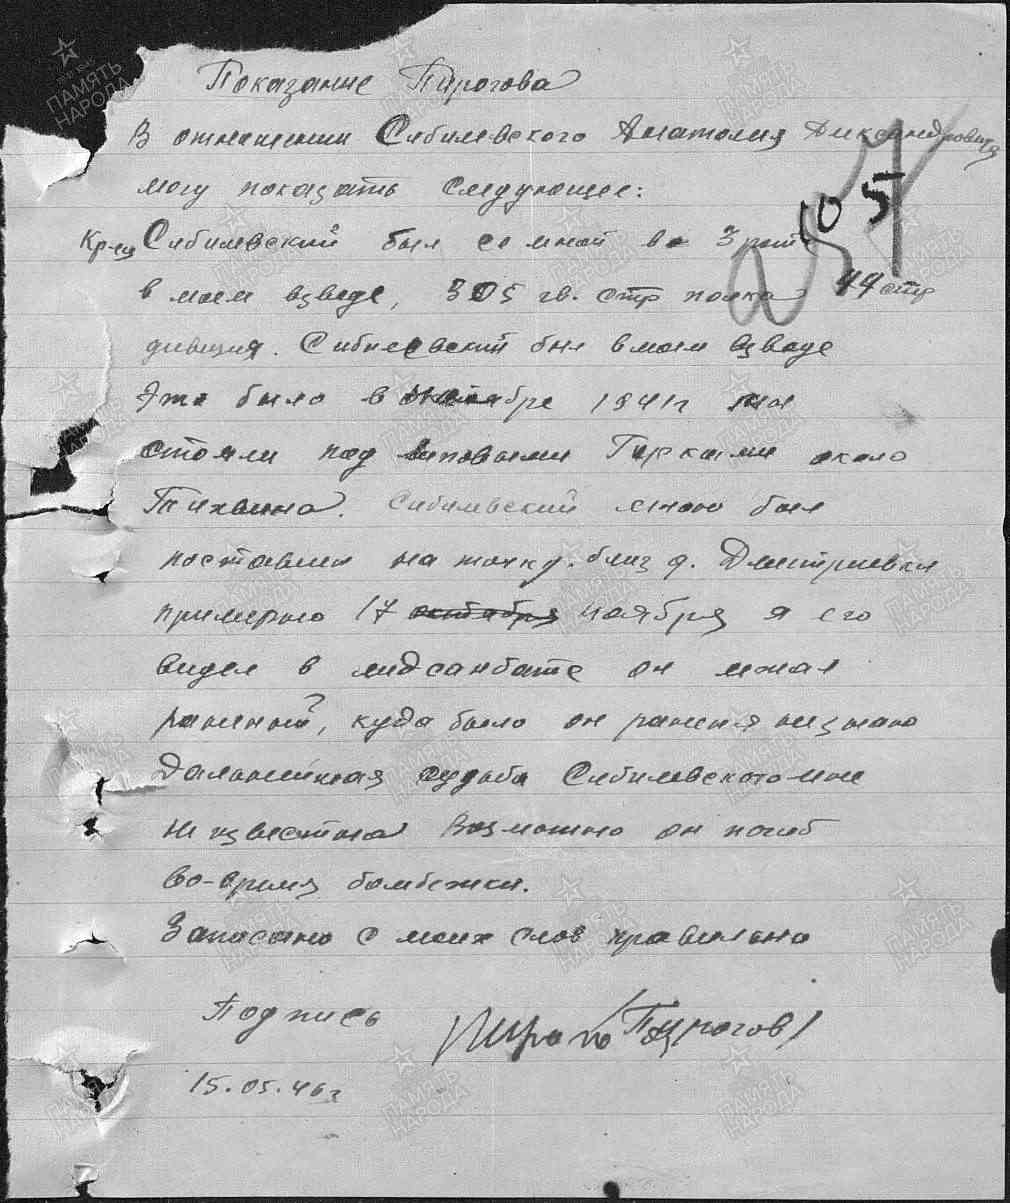 Показание Пирогова
В отношении Сибилевского Анатолия Александровича
могу показать следующее:
105
Кр-ец Сибилевский был со мной в 3 роте
в моем взводе, 305 гв. стр полка 44 стр
дивизия. Сибилевский был в моем взводе
Это было в октябре 1941г мы
стояли под Липовыми Горками около
Тихвина. Сибилевский мною был
поставлен на точку. близ д. Дмитриевки
примерно 17 октября ноября я его
видел в мидсанбате он лежал
раненный, куда было он ранения незнаю
Дальнейшая судьба Сибилевского мне
не известна Возможно он погиб
во-время бомбежки.
Записано с моих слов правильно
Подпись /Пирогов/
15.05.46г
ПАМЯТЬ НАРОДА